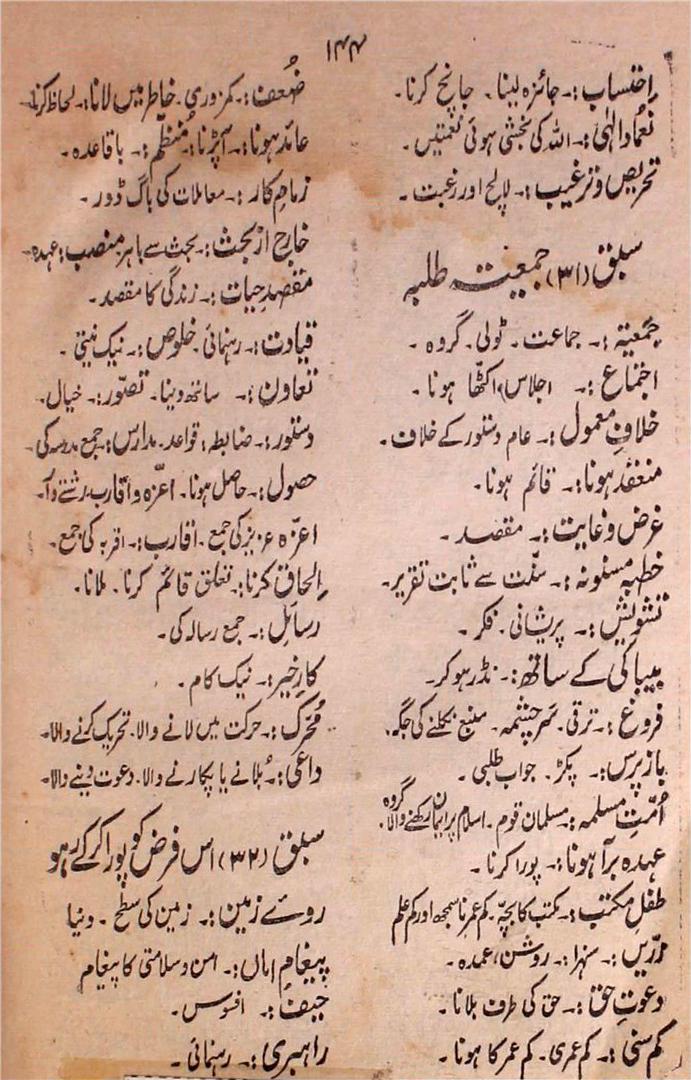 ۱۴۴
اِحتساب:۔ جائزہ لینا۔ جانچ کرنا۔
نعماءِ الٰہی:۔ اللہ کی بخشی ہوئی نعمتیں۔
تحریص و ترغیب:۔ لالچ اور رغبت۔
سبق (۳۱) جمعیت طلبہ
جمعیۃ:۔ جماعت۔ ٹولی۔ گروہ۔
اجتماع:۔ اجلاس، اکٹھا ہونا۔
خلافِ معمول:۔ عام دستور کے خلاف۔
منعقد ہونا:۔ قائم ہونا۔
غرض و غایت:۔ مقصد۔
خطبہ مسنونہ:۔ سنّت سے ثابت تقریر۔
تشویش:۔ پریشانی۔ فکر۔
بیباکی کے ساتھ:۔ نڈر ہو کر۔
فروغ:۔ ترقی۔ سرچشمہ۔ منبع نکلنے کی جگہ۔
بازپرس:۔ پکڑ۔ جواب طلبی۔
اُمّتِ مسلمہ:۔ مسلمان قوم۔ اسلام پر ایمان رکھنے والا گروہ
عہدہ برآ ہونا:۔ پورا کرنا۔
طفلِ مکتب:۔ مکتب کا بچّہ۔ کم عمر ناسمجھ اور کم علم
زرّیں:۔ سنہرا:۔ روشن، عمدہ۔
دعوتِ حق:۔ حق کی طرف بلانا۔
کم سنی:۔ کم عمری۔ کم عمر کا ہونا۔
ضُعف:۔ کمزوری۔ خاطر میں لانا:۔ لحاظ کرنا۔
عائد ہونا:۔ آپڑنا:۔ مُنظّم:۔ باقاعدہ۔
زمامِ کار:۔ معاملات کی باگ ڈور۔
خارج از بحث:۔ بحث سے باہر منصب: عہدہ۔
مقصدِ حیات:۔ زندگی کا مقصد۔
قیادت:۔ رہنمائی۔ خلوص:۔ نیک نیتی۔
تعاون:۔ ساتھ دینا۔ تصوّر:۔ خیال۔
دستور:۔ ضابطہ: قواعد۔ مدارس:۔ جمع مدرسہ کی۔
حصول:۔ حاصل ہونا۔ اعزّہ و اقارب۔ رشتے دار۔
اعزّہ عزیز کی جمع۔ اقارب:۔ اقربہ کی جمع۔
اِلحاق کرنا:۔ تعلق قائم کرنا۔ ملانا۔
رسائل:۔ جمع رسالہ کی۔
کارِ خیر:۔ نیک کام۔
مُحرّک:۔ حرکت میں لانے والا۔ تحریک کرنے والا۔
داعی:۔ بُلانے یا پکارنے والا۔ دعوت دینے والا۔
سبق (۳۲) اس فرض کو پورا کر کے رہو
روئے زمین:۔ زمین کی سطح۔ دنیا
پیغامِ اماں:۔ امن و سلامتی کا پیغام
حیف:۔ افسوس۔
راہبری:۔ رہنمائی۔